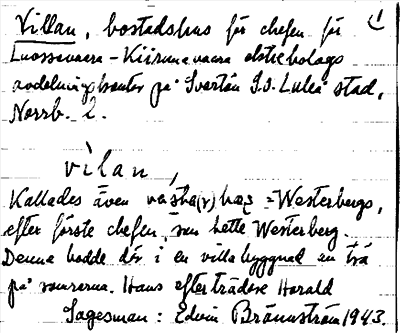 Villan, bostadshus för chefen för
Luossavaara-Kiirunavaara aktiebolags
avdelningskontor på Svartön I.S. Luleå stad,
Norrb. L.
vilan,
Kallades även Westerbergs,
efter förste chefen, som hette Westerberg.
Denne bodde där i en villa byggnad en trä
på somrarna. Hans efterträdare Harald
Sagesman: Edvin Brännström 1943.